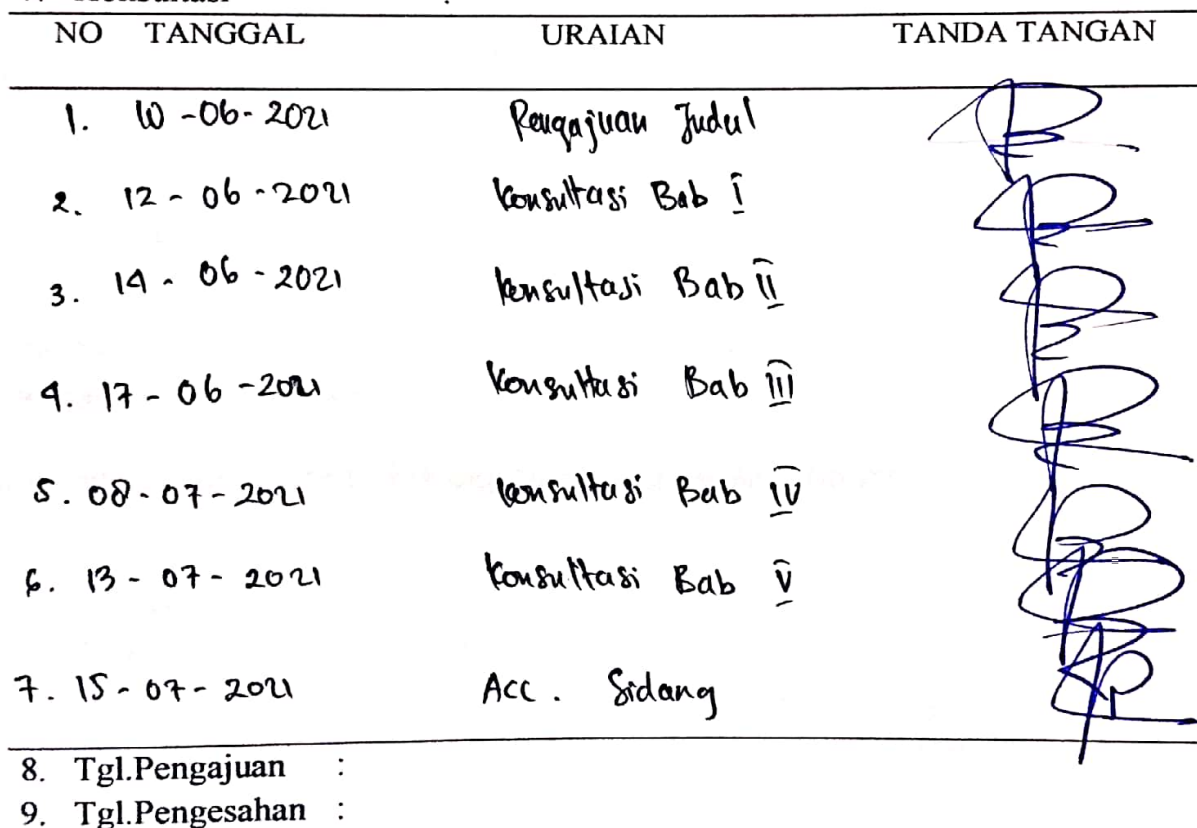 NO TANGGAL URAIAN TANDA TANGAN
1. 10-06-2021 Pengajuan Judul
2. 12-06-2021 Konsultasi Bab I
3. 14-06-2021 Konsultasi Bab II
4. 17-06-2021 Konsultasi Bab III
5. 08-07-2021 Konsultasi Bab IV
6. 13-07-2021 Konsultasi Bab V
7. 15-07-2021 Acc. Sidang
8. Tgl.Pengajuan :
9. Tgl.Pengesahan :